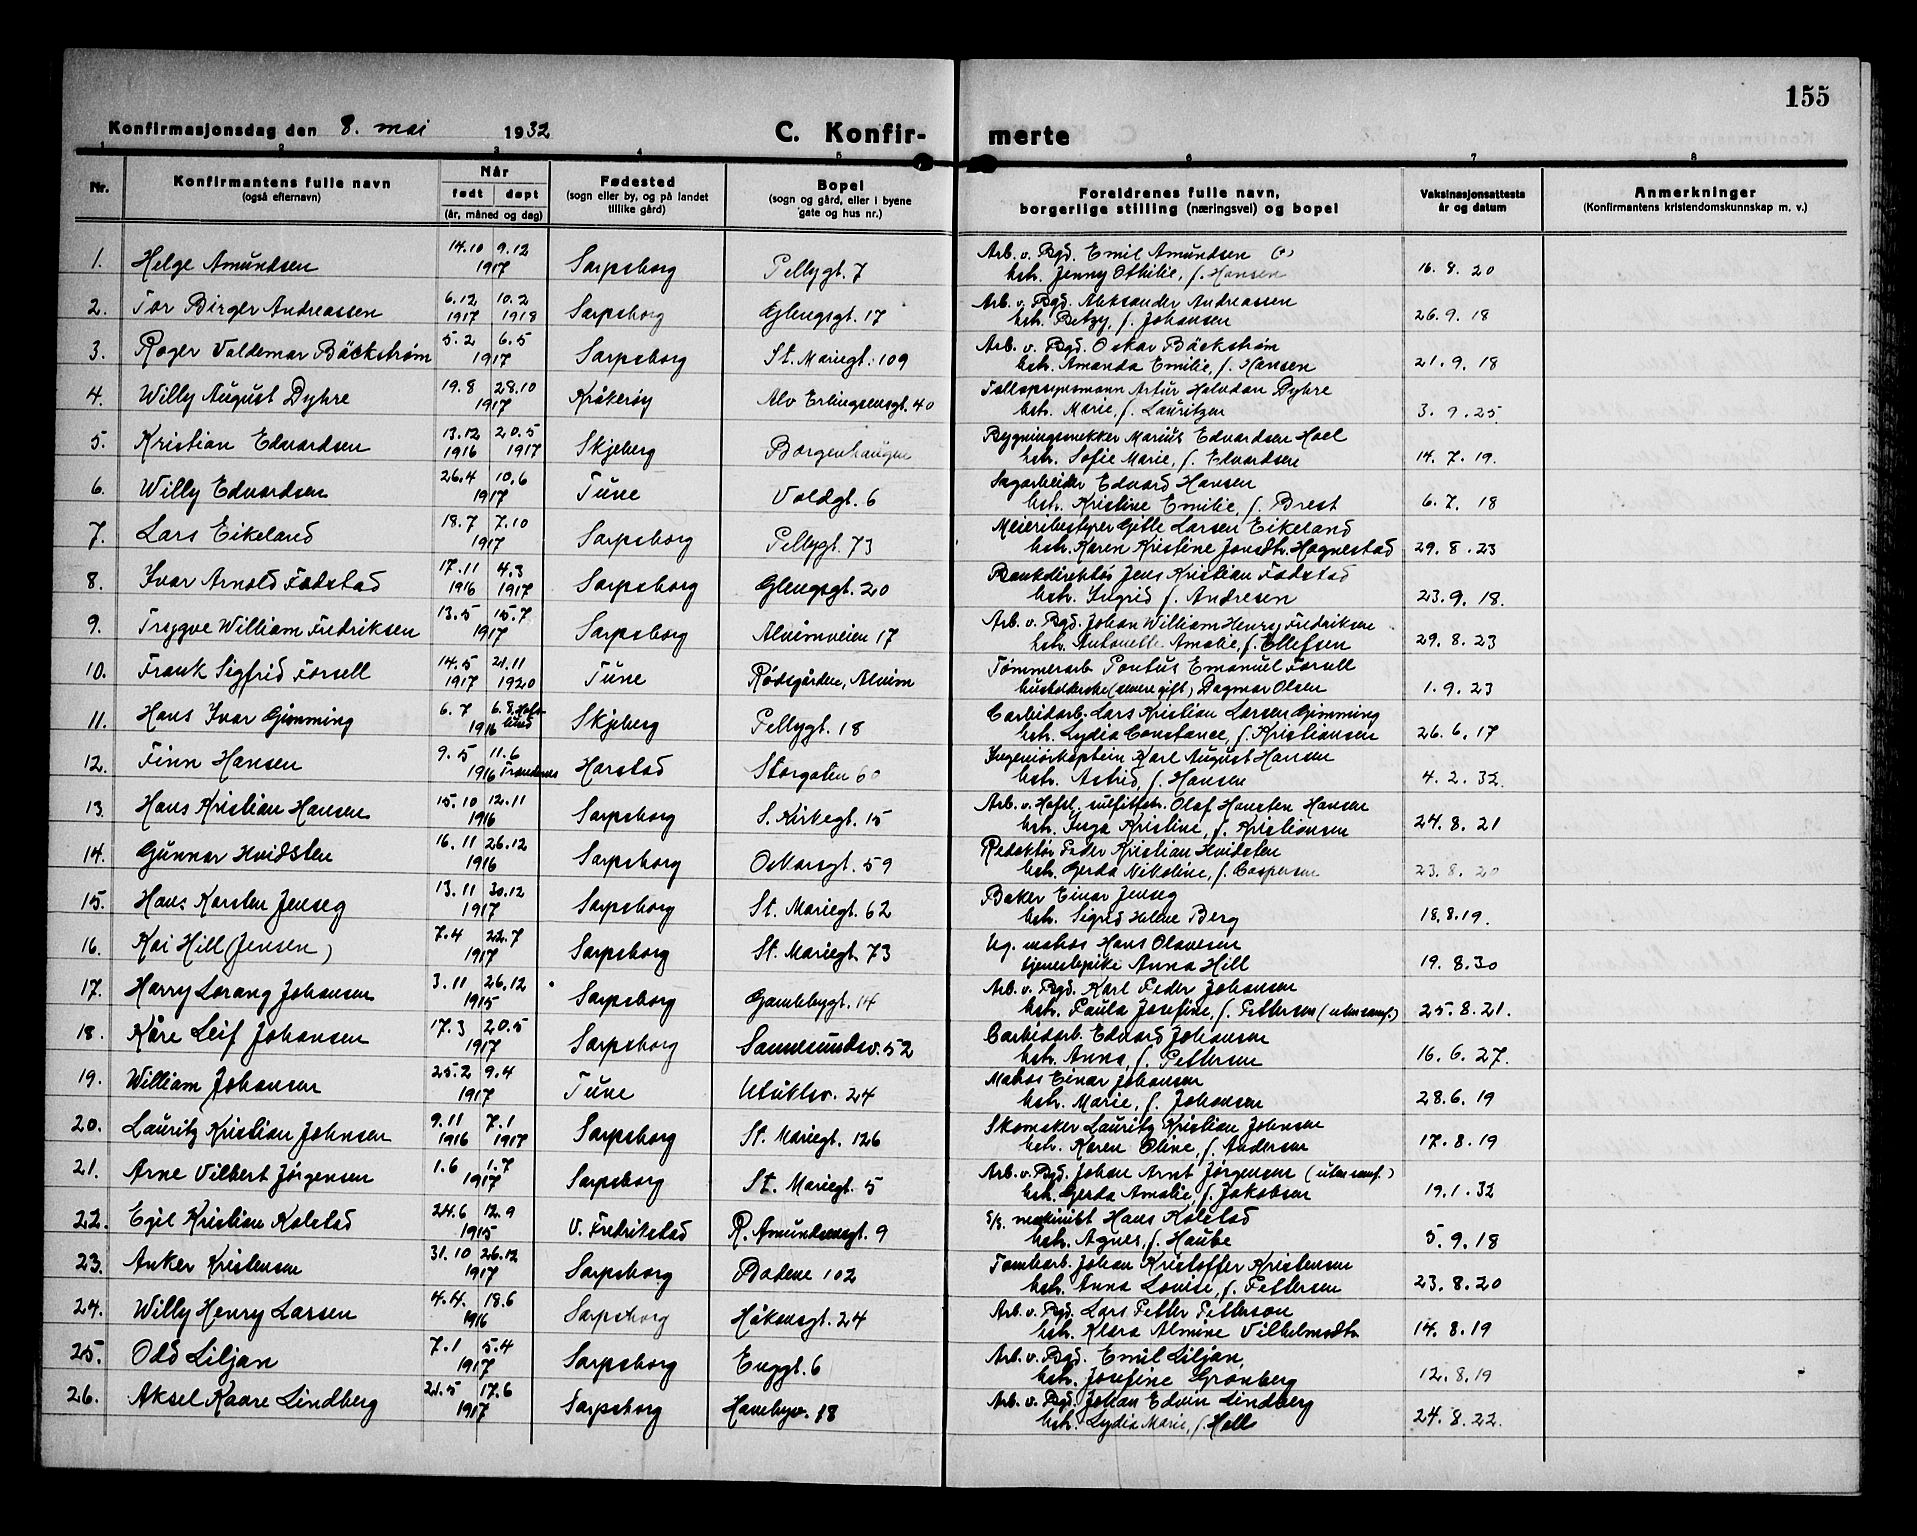 155
Konfirmasjonsdag den 8. mai 1932 C. Konfir- merte
1 2 3 4 5 6 7 8
Nr. Konfirmantens fulle navn (også efternavn) Når født døpt (år, måned og dag) Fødested (sogn eller by, og på landet tillike gård) Bopel (sogn og gård, eller i byene gate og hus nr.) Foreldrenes fulle navn, borgerlige stilling (næringsvei) og bopel Vaksinasjonsattests år og datum Anmerkninger (Konfirmantens kristendomskunnskap m. v.)
1. Helge Amundsen 14.10 9.12 1917 Sarpsborg Pellygt. 7 Arb. v. Bgd. Emil Amundsen
hstr. Jenny Othilie, f. Hansen 16.8.20
2. Tor Birger Andreassen 6.12 1917 10.2 1918 Sarpsborg Glengsgt. 17 Arb. v. Bgd. Aleksander Andreassen
hstr. Betzy, f. Johansen 26.9.18
3. Roger Valdemar Bäckstrøm 5.2 6.5 1917 Sarpsborg St. Mariegt. 109 Arb. v. Bgd. Oskar Bäckstrøm
hstr. Amanda Emilie, f. Hansen 21.9.18
4. Willy August Dyhre 19.8 28.10 1917 Kråkerøy Alv Erlingsensgt. 40 Tallopsynsmann Artur Halvdan Dyhre
hstr. Marie, f. Lauritzen 3.9.25
5. Kristian Edvardsen 13.12 1916 20.5 1917 Skjeberg Borgenhaugen Bygningssnekker Marius Edvardsen Hoel
hstr. Sofie Marie, f. Edvardsen 14.7.19.
6. Willy Edvardsen 26.4 10.6 1917 Tune Voldgt. 6 Sagarbeider Edvard Hansen
hstr. Kristine Emilie, f. Brest 6.7.18
7. Lars Eikeland 18.7 7.10 1917 Sarpsborg Pellygt. 73 Meieribestyrer Gitle Larsen Eikeland
hstr. Karen Kristine Jonsdtr. Hognestad 29.8.23
8. Ivar Arnold Fodstad 17.11 1916 4.3 1917 Sarpsborg Glengsgt. 20 Bankdirektør Jens Kristian Fodstad
hstr. Ingrid f. Andresen 23.9.18.
9. Trygve William Fredriksen 13.5 15.7 1917 Sarpsborg Alvimveien 17 Arb. v. Bgd. Johan William Henry Fredriksen
hstr. Antonette Amalie, f. Ellefsen 29.8.23
10. Frank Sigfrid Forsell 14.5 1917 21.11 1920 Tune Rødsgårdene, Alvim Tømmerarb. Pontus Emanuel Forsell
husholderske (senere gift) Dagmar Olsen 1.9.23
11. Hans Ivar Gimming 6.7 6.8 Hafslund 1916 Skjeberg Pellygt. 18 Carbidarb. Lars Kristian Larsen Gimming
hstr. Lydia Constance, f. Kristiansen 26.6.17
12. Finn Hansen 9.5 11.6 1916 Trondenes Harstad Storgaten 60 Ingeniørkaptein Karl August Hansen
hstr. Astrid, f. Hansen 4.2.32.
13. Hans Kristian Hansen 15.10 12.11 1916 Sarpsborg S. Kirkegt. 15 Arb. v. Hafsl. sulfitfabr. Olaf Hansten Hansen
hstr. Inga Kristine, f. Kristiansen 24.8.21
14. Gunnar Hvidsten 16.11 26.12 1916 Sarpsborg Oskarsgt. 59 Redaktør Peder Kristian Hvidsten
hstr. Gerda Nikoline, f. Caspersen 23.8.20
15. Hans Karsten Jenseg 13.11 30.12 1917 Sarpsborg St. Mariegt. 62 Baker Einar Jenseg
hstr. Sigrid Helene Berg 18.8.19.
16. Kai Hill (Jensen) 7.4 22.7 1917 Sarpsborg St. Mariegt 73 Ug. matros Hans Olavesen
tjenestepike Anna Hill 19.8.30
17. Harry Lorang Johansen 3.11 26.12 1915 Sarpsborg Gamlebygt. 14 Arb. v. Bgd. Karl Peder Johansen
hstr. Paula Josefine, f. Pettersen (uten samf.) 25.8.21.
18. Kåre Leif Johansen 17.3 20.5 1917 Sarpsborg Sannesundsv. 52 Carbidarb. Edvard Johansen
hstr. Anna, f. Pettersen 16.6.27.
19. William Johansen 25.2 9.4 1917 Tune Utsiktsv. 24 Matros Einar Johansen
hstr. Marie, f. Johansen 28.6.19
20. Lauritz Kristian Johnsen 9.11 1916 7.1 1917 Sarpsborg St. Mariegt. 126 Skomaker Lauritz Kristian Johnsen
hstr. Karen Oline, f. Andersen 17.8.19
21. Arne Vilbert Jørgensen 1.6 1.7 1917 Sarpsborg St. Mariegt. 5 Arb. v. Bgd. Johan Arnt Jørgensen (uten samf.)
hstr. Gerda Amalie, f. Jakobsen 19.1.32
22. Egil Kristian Kolstad 24.6 12.9 1915 V. Fredrikstad R. Amundsensgt. 9 s/s. maskinist Hans Kolstad
hstr. Agnes, f. Haube 5.9.18
23. Anker Kristensen 31.10 26.12 1917 Sarpsborg Bodene 102 Tomtearb. Johan Kristoffer Kristensen
hstr. Anna Lovise, f. Pettersen 23.8.20
24. Willy Henry Larsen 4.4. 18.6 1916 Sarpsborg Håkonsgt. 24 Arb. v. Bgd. Lars Petter Petterson
hstr. Klara Almine Vilhelmsdtr 14.8.19
25. Odd Liljan 7.1 5.4 1917 Sarpsborg Enggt. 6 Arb. v. Bgd. Emil Liljan,
hstr. Josefine Grønberg 12.8.19
26. Aksel Kaare Lindberg 21.5 17.6 1917 Sarpsborg Hannebyv. 18 Arb. v. Bgd. Johan Edvin Lindberg
hstr. Lydia Marie, f. Hell 24.8.22.